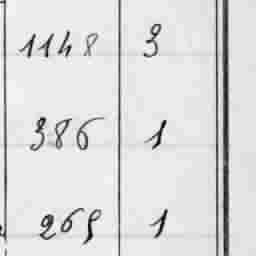 1148 3
386 1
265 1